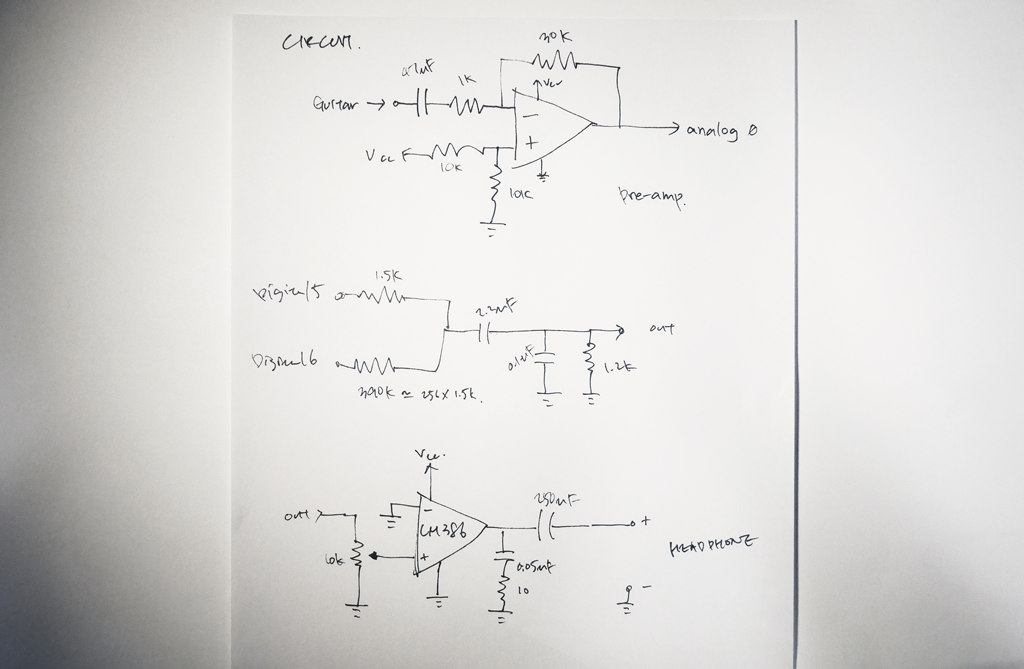 CIRCUIT.
30K
0.1uF
1K
Vcc
Guitar
-
analog 0
+
Vcc
10K
10K
pre-amp.
1.5K
Digital 5
2.2uF
out
0.1uF
Digital 6
1.2K
390K ≃ 256 x 1.5K.
Vcc.
250uF
out
-
LM386
+
HEADPHONE
10k
+
0.05uF
10
-